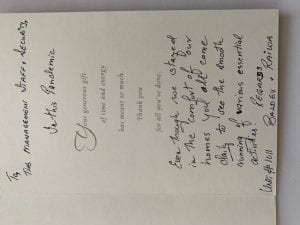 To,
THE MANAGEMENT STAFF & SECURITY
In this Pandemic
Your generous gift
of time and energy
has meant so much.
Thank you
for all you've done.
Even though we stayed
in the comfort of our
homes you all come
daily to see the smooth
running of various essential
activities.
REGARDS
BALDEV & RAIKA
Unit # 1011